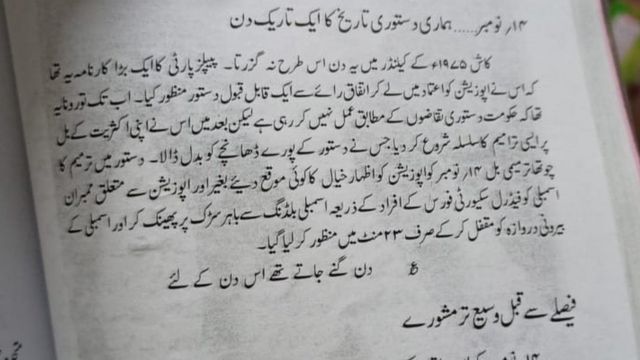 ۱۴؍ نومبر...... ہماری دستوری تاریخ کا ایک تاریک دن
کاش ۱۹۷۵ء کے کیلنڈر میں یہ دن اس طرح نہ گزرتا۔ پیپلز پارٹی کا ایک بڑا کارنامہ یہ تھا
کہ اس نے اپوزیشن کو اعتماد میں لے کر اتفاق رائے سے ایک قابل قبول دستور منظور کیا۔ اب تک تو رونا یہ
تھا کہ حکومت دستوری تقاضوں کے مطابق عمل نہیں کر رہی ہے لیکن بعد میں اس نے اپنی اکثریت کے بل
پر ایسی ترامیم کا سلسلہ شروع کر دیا، جس نے دستور کے پورے ڈھانچے کو بدل ڈالا۔ دستور میں ترمیم کا
چوتھا ترمیمی بل ۱۴؍ نومبر کو اپوزیشن کو اظہار خیال کا کوئی موقع دیئے بغیر اور اپوزیشن سے متعلق ممبران
اسمبلی کو فیڈرل سکیورٹی فورس کے افراد کے ذریعہ اسمبلی بلڈنگ سے باہر سڑک پر پھینک کر اور اسمبلی کے
بیرونی دروازہ کو مقفل کر کے صرف ۲۳ منٹ میں منظور کر لیا گیا۔
ع دن گنے جاتے تھے اس دن کے لئے
فیصلے سے قبل وسیع تر مشورے
۱۴؍ نومبر